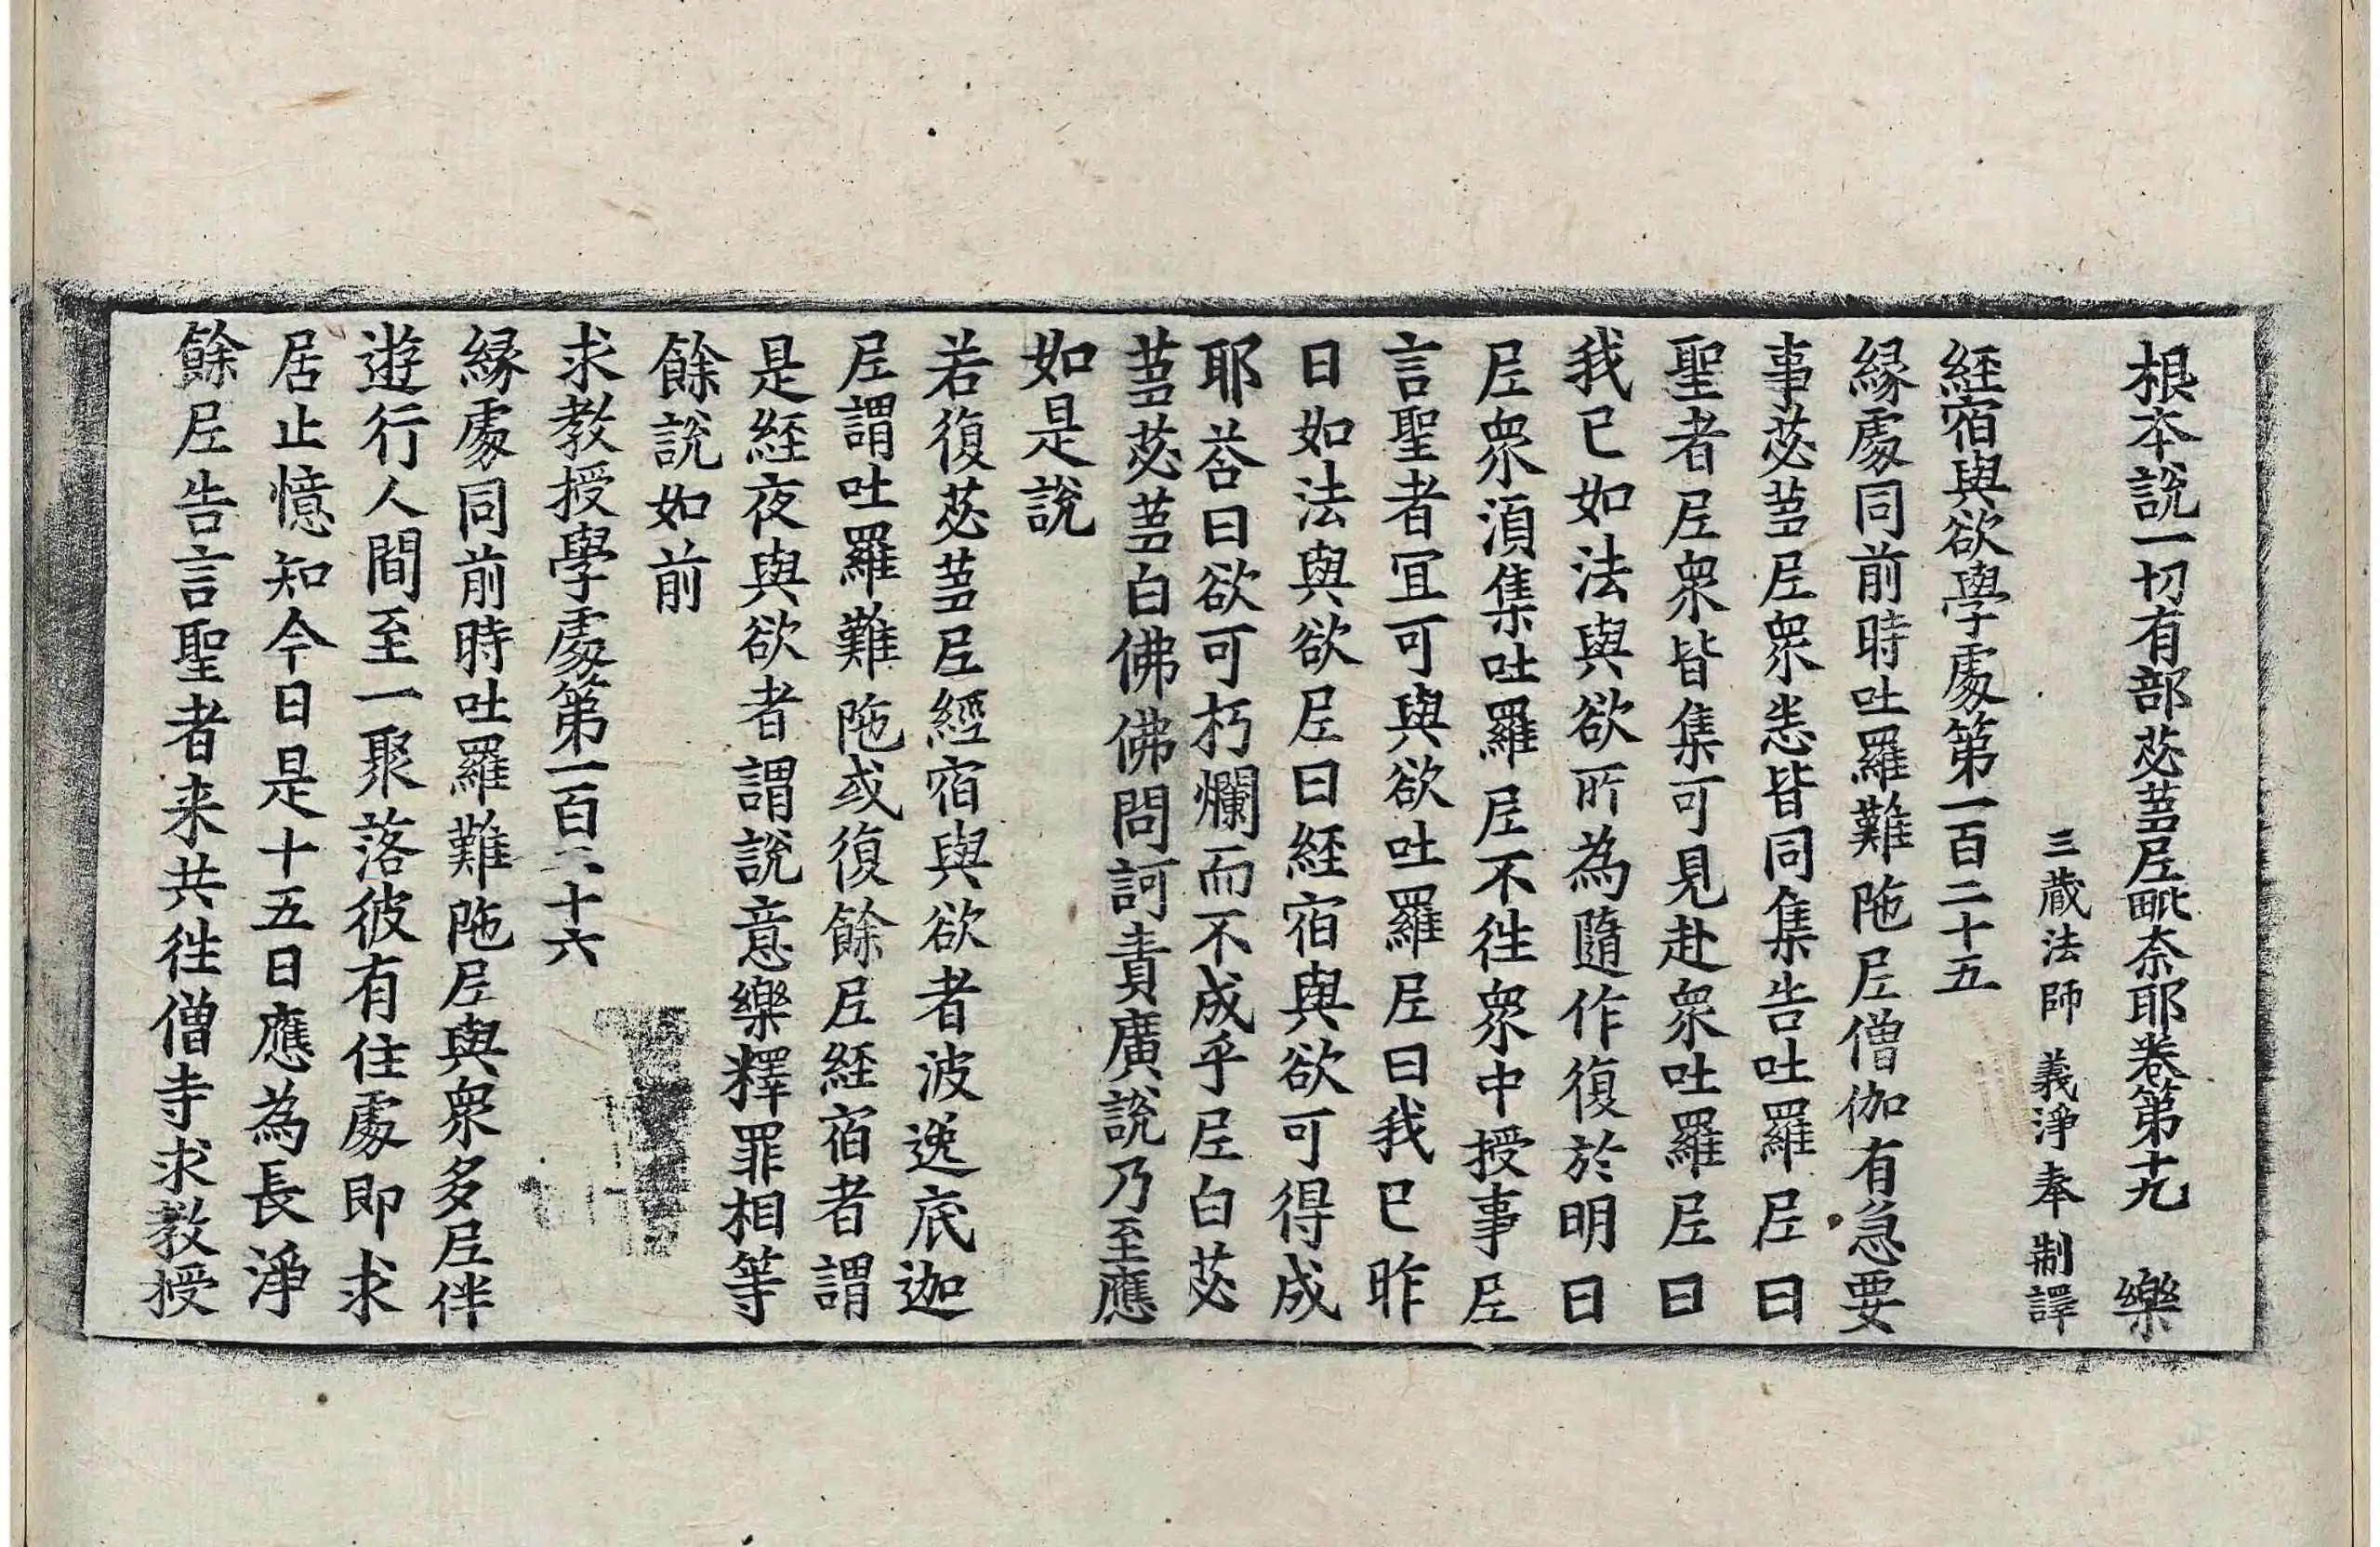 根本說一切有部苾蒭尼毗奈耶卷第十九 樂
三藏法師 義淨奉 制譯
經宿與欲學處第一百二十五
緣處同前時吐羅難陁尼僧伽有急要
事苾蒭尼衆恙皆同集告吐羅尼曰
聖者尼衆皆集可見赴衆吐羅尼曰
我已如法與欲所為隨作復於明日
尼衆湏集吐羅尼不往衆中授事尼
言聖者冝可與欲吐羅尼曰我已昨
日如法與欲尼曰經宿與欲可得成
耶荅曰欲可朽爛而不成乎尼白苾
蒭苾蒭白佛佛問訶責廣說乃至應
如是說
若復苾蒭尼經宿與欲者波逸底迦
尼謂吐羅難陁或復餘尼經宿者謂
是經夜與欲者謂說意樂釋罪相等
餘說如前
求教授學處第一百二十六
緣處同前時吐羅難陁尼與衆多尼伴
遊行人間至一聚落彼有住處即求
居止憶知今日是十五日應為長淨
餘尼告言聖者来共往僧寺求教授